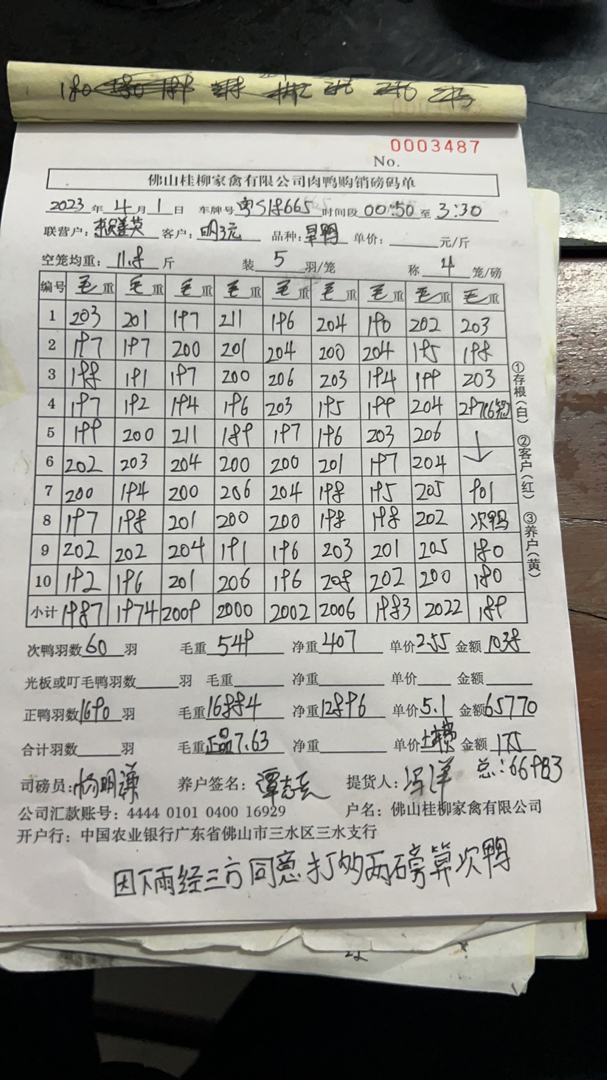 0003487
No.
佛山桂柳家禽有限公司肉鸭购销磅码单
2023 年 4 月 1 日 车牌号 粤S18665 时间段 00:50 至 3:30
联营户: 客户: 品种: 旱鸭 单价: 元/斤
空笼均重: 11.8 斤 装 5 羽/笼 称 4 笼/磅
编号 毛重 毛重 毛重 毛重 毛重 毛重 毛重 毛重 毛重
1 203 201 197 211 196 204 190 202 203
2 197 197 200 201 204 200 204 195 198
3 198 191 197 200 206 203 194 199 203
4 197 192 194 196 203 195 199 204 297
5 199 200 211 189 197 196 203 206 ↓
6 202 203 204 200 200 201 197 204
7 200 194 200 206 204 198 195 205 901
8 197 198 201 200 200 198 198 202 次鸭
9 202 202 204 191 196 203 201 205 180
10 192 196 201 206 196 208 202 200 180
小计 1987 1974 2009 2000 2002 2006 1983 2022 189
①存根(白) ②客户(红) ③养户(黄)
次鸭羽数 60 羽 毛重 549 净重 407 单价 2.55 金额 1038
光板或叮毛鸭羽数 羽 毛重 净重 单价 金额
正鸭羽数 1690 羽 毛重 16884 净重 12896 单价 5.1 金额 65770
合计羽数 羽 毛重 正品7.63 净重 单价 金额 175
总:66983
司磅员: 杨明谦 养户签名: 提货人: 冯洋
公司汇款账号: 4444 0101 0400 16929 户名: 佛山桂柳家禽有限公司
开户行: 中国农业银行广东省佛山市三水区三水支行
因下雨经三方同意打的两磅算次鸭